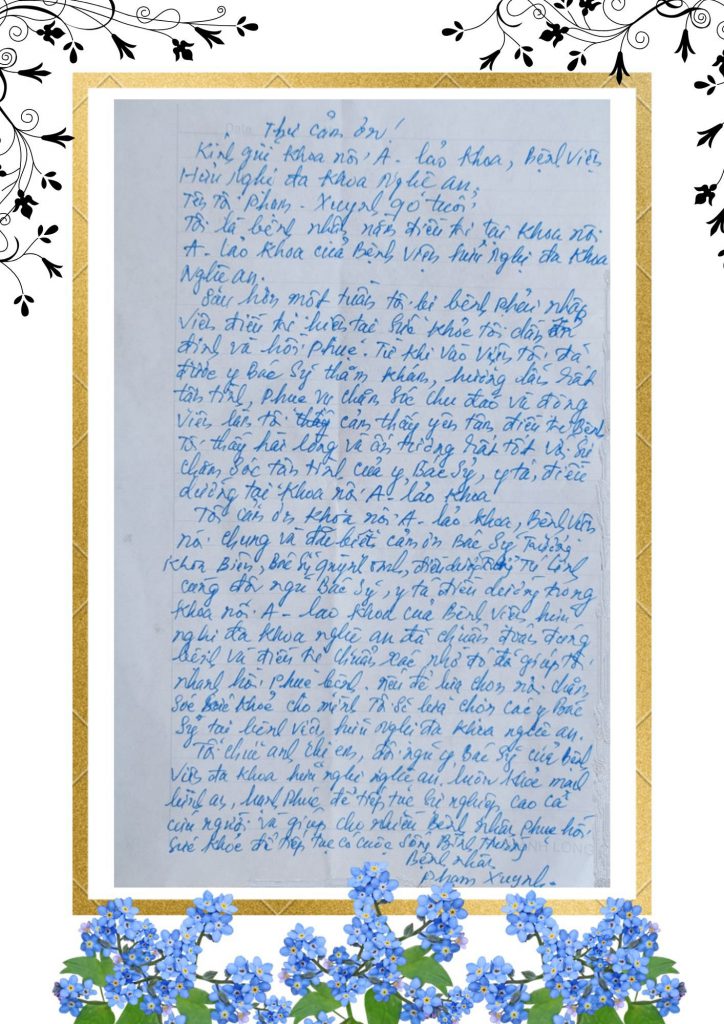 Thư cảm ơn!
Kính gửi Khoa nội A - Lảo Khoa, Bệnh Viện
Hữu Nghị đa Khoa Nghệ an,
Tên tôi Phạm - Xuynh 90 tuổi
Tôi là bệnh nhân nằm điều trị tại Khoa nội
A - Lảo Khoa của Bệnh Viện hữu nghị đa Khoa
Nghệ an.
Sau hơn một tuần tôi bị bệnh phải nhập
viện điều trị hiện tại sức khỏe tôi dần ổn
định và hồi phục. Từ khi vào viện tôi đã
được y Bác Sỹ thăm khám, hướng dẩn rất
tận tình, phục vụ chăm sóc chu đáo và động
viên làm tôi cảm thấy yên tâm điều trị Bệnh
Tôi thấy hài lòng và ấn tượng rất tốt với sự
chăm sóc tận tình của y Bác Sỹ, y tá, điều
dưỡng tại Khoa nội A - Lảo Khoa
Tôi cảm ơn Khoa nội A - lảo Khoa, Bệnh viện
nói chung và đặc biệt cảm ơn Bác Sỹ Trương
Biên, Bác Sỹ Quỳnh Anh, điều dưỡng Tú
cùng đội ngũ Bác Sỹ, y tá điều dưỡng trong
Khoa nội A - Lao Khoa của Bệnh Viện hữu
nghị đa Khoa nghệ an đã chuẩn đoán đúng
bệnh và điều trị chuẩn xác nhờ đó đã giúp tôi
nhanh hồi phục bệnh. nếu để lựa chọn nơi chăm
sóc sức khoẻ cho mình Tôi sẽ lựa chọn các y Bác
Sỹ tại bệnh viện hữu nghị đa khoa nghệ an.
Tôi chúc anh chị em, đội ngũ y Bác Sỹ của Bệnh
Viện đa khoa hữu nghị nghệ an. luôn khỏe mạnh
bình an, hạnh phúc, để tiếp tục sự nghiệp cao cả
cứu người và giúp cho nhiều Bệnh nhân phục hồi
sức khỏe để tiếp tục có cuộc sống Bình thường
Bệnh nhân
Phạm Xuynh.